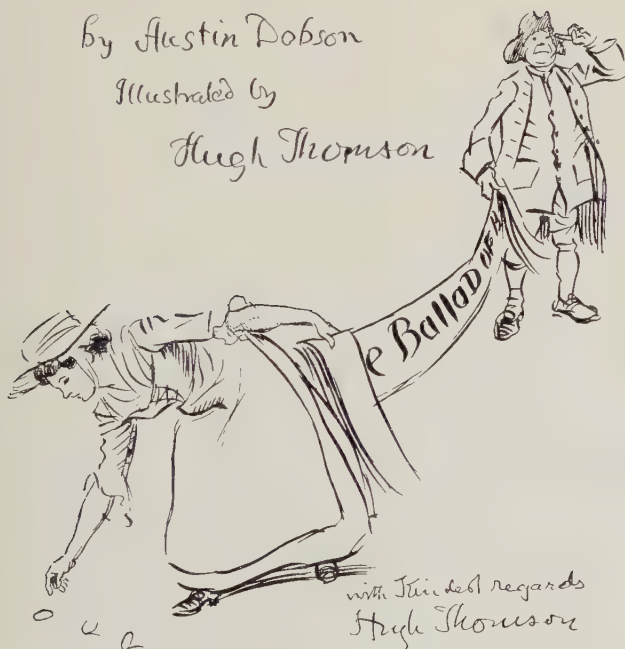 by Austin Dobson
Illustrated by
Hugh Thomson
e Ballad OF
with Kindest regards
Hugh Thomson